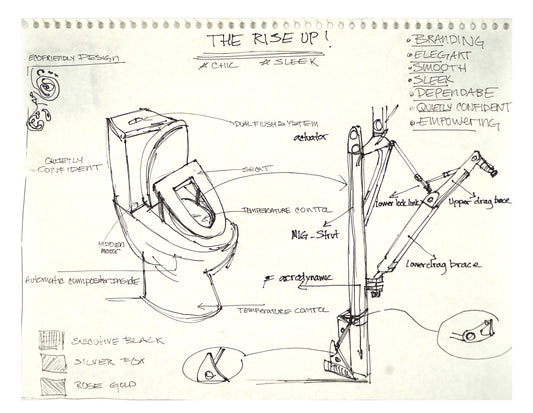 THE RISE UP!
★ CHIC ★ SLEEK
ECOFRIENDLY DESIGN
BRANDING
ELEGANT
SMOOTH
SLEEK
DEPENDABE
QUIETLY CONFIDENT
EMPOWERING
DUAL FLUSH SYSTEM
actuator
QUIETLY
CONFIDENT
TEMPERATURE CONTROL
HIDDEN
MOTOR
Automatic composter inside
TEMPERATURE CONTROL
Lower lock link
Upper drag brace
MLG-Strut
Lower drag brace
aerodynamic
EXECUTIVE BLACK
SILVER FOX
ROSE GOLD